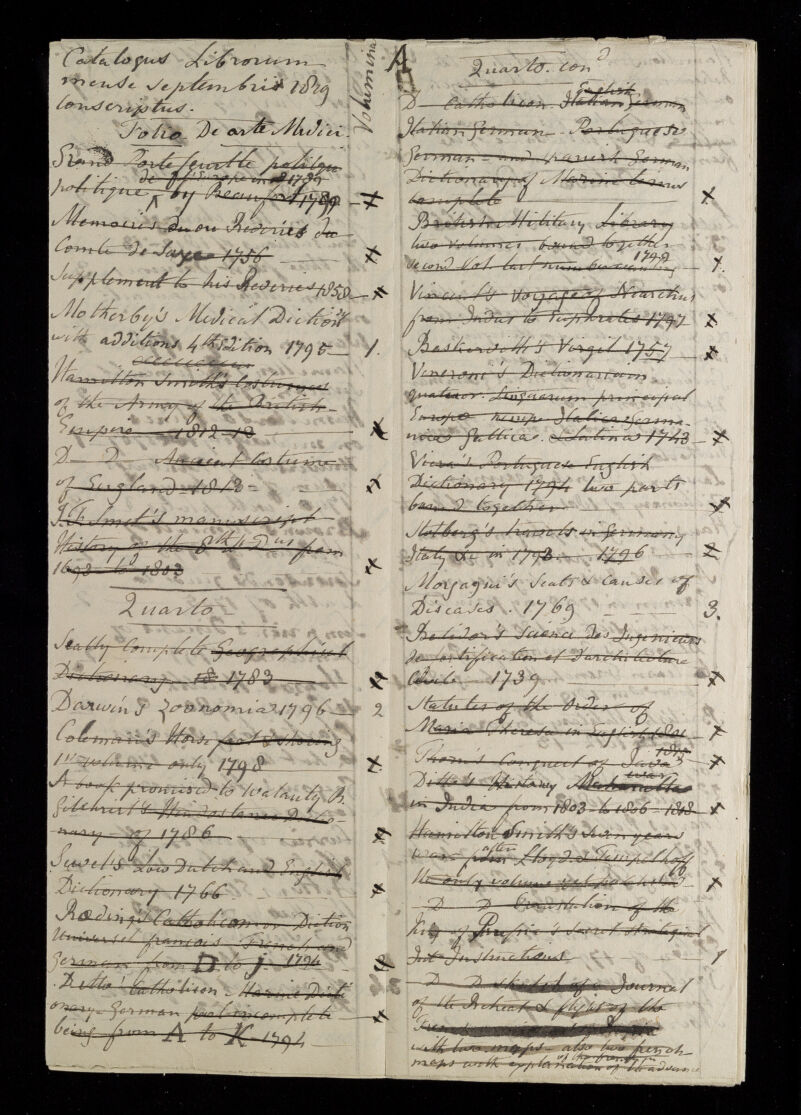 Catalogus Librorum
mense Septembris 1829
Conscriptus.
Volumina
Folio De arte Medici
Grand Porte feuille politique
de l'Europe in 1789
politique by Beaufort 1789
Memoirs Reveries du
Comte de Saxe 1756
Supplement to his Reveries 1858
Motherby's Medical Diction
with additions 4th Edition 1795 1.
Hamilton Smith's Costumes
of the Army of the British
Empire 1812-13
D D Ancient Costume
of England 1813
Smet's manuscript
History of the 8th from
1693 to 1803
Quarto
Scally Complete Geographical
Dictionary 1783
Darwin's Zoonomia 1796 2
Coleman's Horse foot & shoeing
1st volume only 1798
A book promised to
Gilchrist's Hindostanee Dictio
nary of 1786
Sewel's Low Dutch and English
Dictionary 1766
Rœdings Catholicon or Diction
Universel francois French and
German from D to J 1794
Ditto Catholicon Marine Dicti
onary German part incomplete
being from A to K 1794
A
Quarto con.d
English
D Catholicon Italian German
Italian German Portuguese
German and Danish German
Dictionary of Marine terms
complete x
Military Library
two volumes bound together
second Vol last 1798 1.
Vincent's Voyage of Nearchus
from Indus to Euphrates 1797 x
Baskerville's Virgil 1757 x
Veneroni's Dictionarium
quatuor Linguarum principal
Europæ Italica Germa-
nica Gallica Latina 1743 x
Viera's Portuguese English
Dictionary 1794 two parts
bound together x
Stolberg's travels in Germany
Italy &c in 1793 1796
Morgagni's Seats & causes of
Diseases. 1769 3.
Belidor's Science des Ingenieurs
de fortification et d'architecture
Civile 1739 x
Statutes of the Order of
Maria Theresa in English 1801 x
Thorn's Conquest of Java 1815 x
war
Ditto's History Maharatta
in India from 1803 to 1806 1818 x
Hamilton Smith's Seven years
after
war from Lloyd & Tempelhoff
the only volume yet published x
D D Constitution of the
King of Prussia's Secret Strategical
Instructions 1
D D sketch of a Journal
of the Retreat & flight of the
with two maps also two french
of the french
maps with explanation of the advance